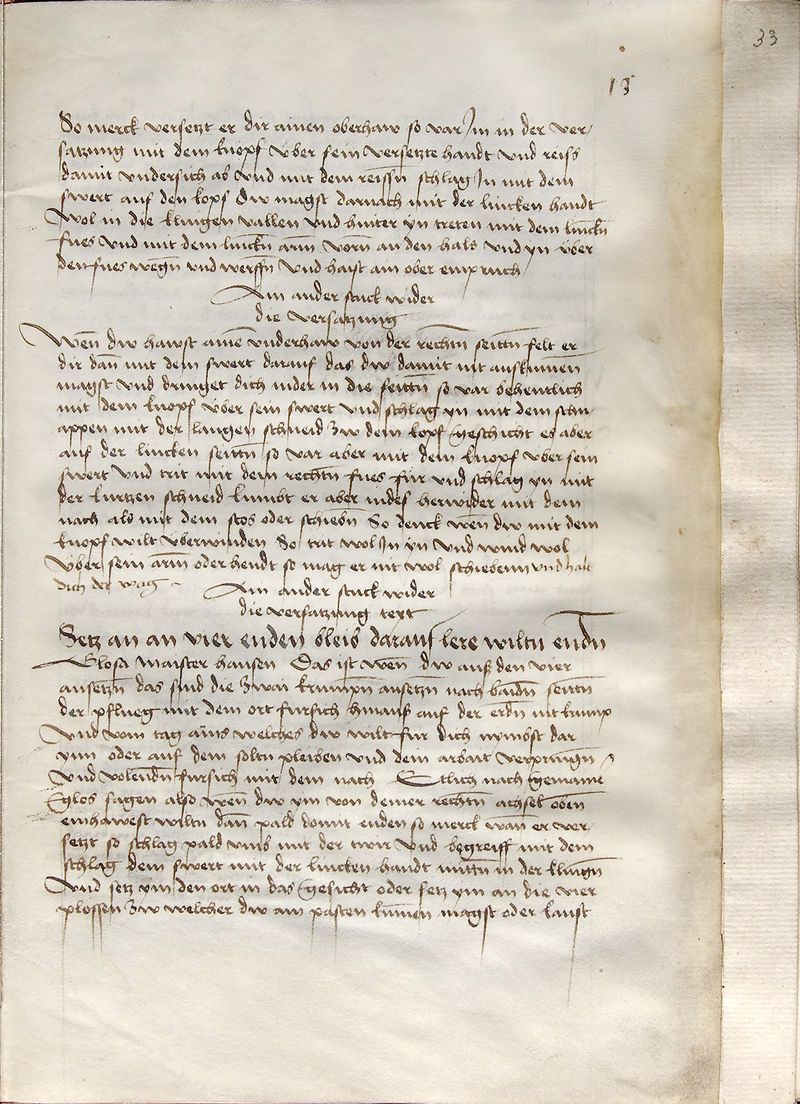 33
13
So merck versetzt er dir ainen oberhaw so var Im in der ver-
satzung mit dem knopf vber sein versetzte handt vnd reiss
damit vndersich ab vnd mit dem reissn̄ schlag In mit dem
swert auf den kopf Dw magst darnach mit der lincken handt
wol in die klingen vallen vnd hinter yn treten mit dem linckn̄
fues vnd mit dem linckn̄ arm̄ vorn̄ an den hals vnd yn vber
den fues wegn̄ vnd werffn̄ vnd haist ain ober einpruch
Ain ander stuck wider
die versatzung
Wen̄ dw hawst aine vnderhaw von der rechtn̄ seittn̄ felt er
dir dan̄ mit dem swert darauf das dw damit nit auf kumen
magst vnd dringet dich nider in die seittn̄ so var behentlich
mit dem knopf vber sein swert vnd schlag yn mit dem schn-
appen mit der langen schneid zw dem kopf geschicht es aber
auf der lincken seittn̄ so var aber mit dem knopf vber sein
swert vnd trit mit dem rechtn̄ fues für vnd schlag yn mit
der kurtzen schneid kumbt er aber indes herwider mit dem
nach als mit dem stos oder schiebn̄ So denck wen̄ dw mit dem
knopf wilt vberwinden So trit wol In yn vnd wind wol
vber sein arm̄ oder hendt so mag er nit wol schiebenn vnd halt
dich der wag
Ain ander stuck wider
die versatzung text
Setz an an vier enden bleib darauf lere wiltu endn̄
Glosa Maister hansen Das ist wen̄ dw auss den vier
ansetzn̄ das sind die zwai krumpn̄ ansetzn̄ nach baidn̄ seittn̄
der pflueg mit dem ort fursich hinauf auf der erdn̄ nit krump
vnd vom tag ains welches dw wilt für dich nymbst dar
ynn oder auf dem soltu pleiben vnd dein arbait verpringn̄
vnd volendn̄ fursich mit dem nach Etlich nach gemaine
glos sagen also wen̄ dw ym von deiner rechtn̄ achsel oben̄
einhawest wiltu dan̄ pald domit enden so merck wan̄ er ver-
setzt so schlag pald vmb mit der twir vnd begreiff mit dem
schlag dem swert mit der lincken handt mittn̄ in der klingn̄
vnd setz ym den ort in das gesicht oder setz ym an die vier
plossen zw welcher dw am pasten kumen magst oder kanst